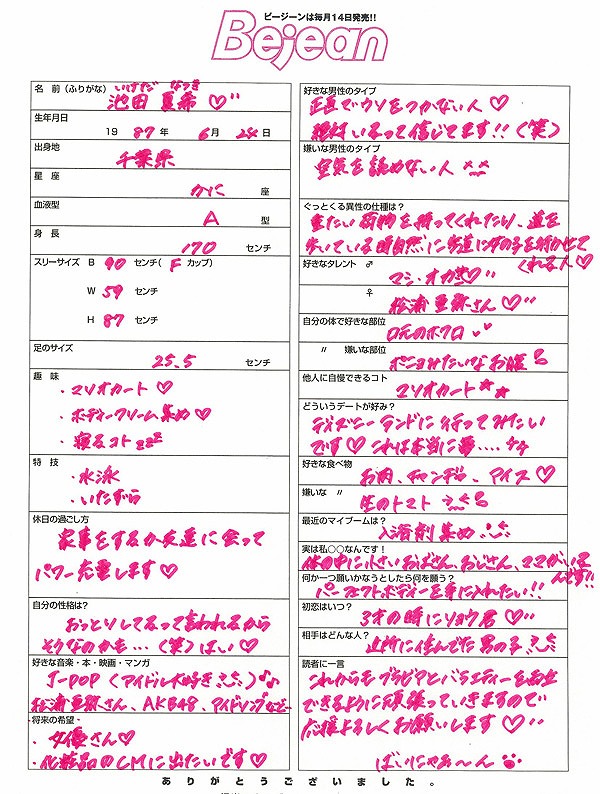 ビージーンは毎月14日発売!!
Bejean
名 前 (ふりがな) いけだ なつき
池田 夏希 ♡
生年月日
19 87 年 6 月 24 日
出身地
千葉県
星 座
かに 座
血液型
A 型
身 長
170 センチ
スリーサイズ B 90 センチ( F カップ)
W 59 センチ
H 87 センチ
足のサイズ
25.5 センチ
趣 味
・マリオカート♡
・ボディークリーム集め♡
・寝るコト zzz
特 技
・水泳
・いたずら
休日の過ごし方
家事をするか友達に会って
パワー充電します♡
自分の性格は?
おっとりしてるって言われるから
そうなのかも…(笑)はい♡
好きな音楽・本・映画・マンガ
J-POP (アイドル大好き)♪♪
松浦亜弥さん、AKB48、アイドリングなど…
将来の希望
・女優さん♡
・化粧品のCMに出たいです♡
好きな男性のタイプ
正直でウソをつかない人♡
絶対いるって信じてます!!(笑)
嫌いな男性のタイプ
空気を読めない人
ぐっとくる異性の仕種は?
重たい荷物を持ってくれたり、道を
歩いている時自然に歩道に女の子を行かせて
くれる人♡
好きなタレント ♂
マシ・オカ
♀
松浦亜弥さん♡
自分の体で好きな部位
口元のホクロ
〃 嫌いな部位
ポニョみたいなお腹
他人に自慢できるコト
マリオカート☆☆
どういうデートが好み?
ディズニーランドに行ってみたい
です♡これは本当に夢….
好きな食べ物
お肉、チャンヂャ、アイス♡
嫌いな 〃
生のトマト
最近のマイブームは?
入浴剤集め
実は私○○なんです!
体の中に小さいおばさん、おじさん、ママがいる
んです!!
何か一つ願いかなうとしたら何を願う?
パーフェクトボディーを手に入れたい!!
初恋はいつ?
3才の時にリョウ君♡
相手はどんな人?
近所に住んでた男の子
読者に一言
これからもグラビアとバラエティーを両立
できるように頑張っていきますので
応援よろしくお願いします♡
ばいにゃぁ〜ん
ありがとうございました。